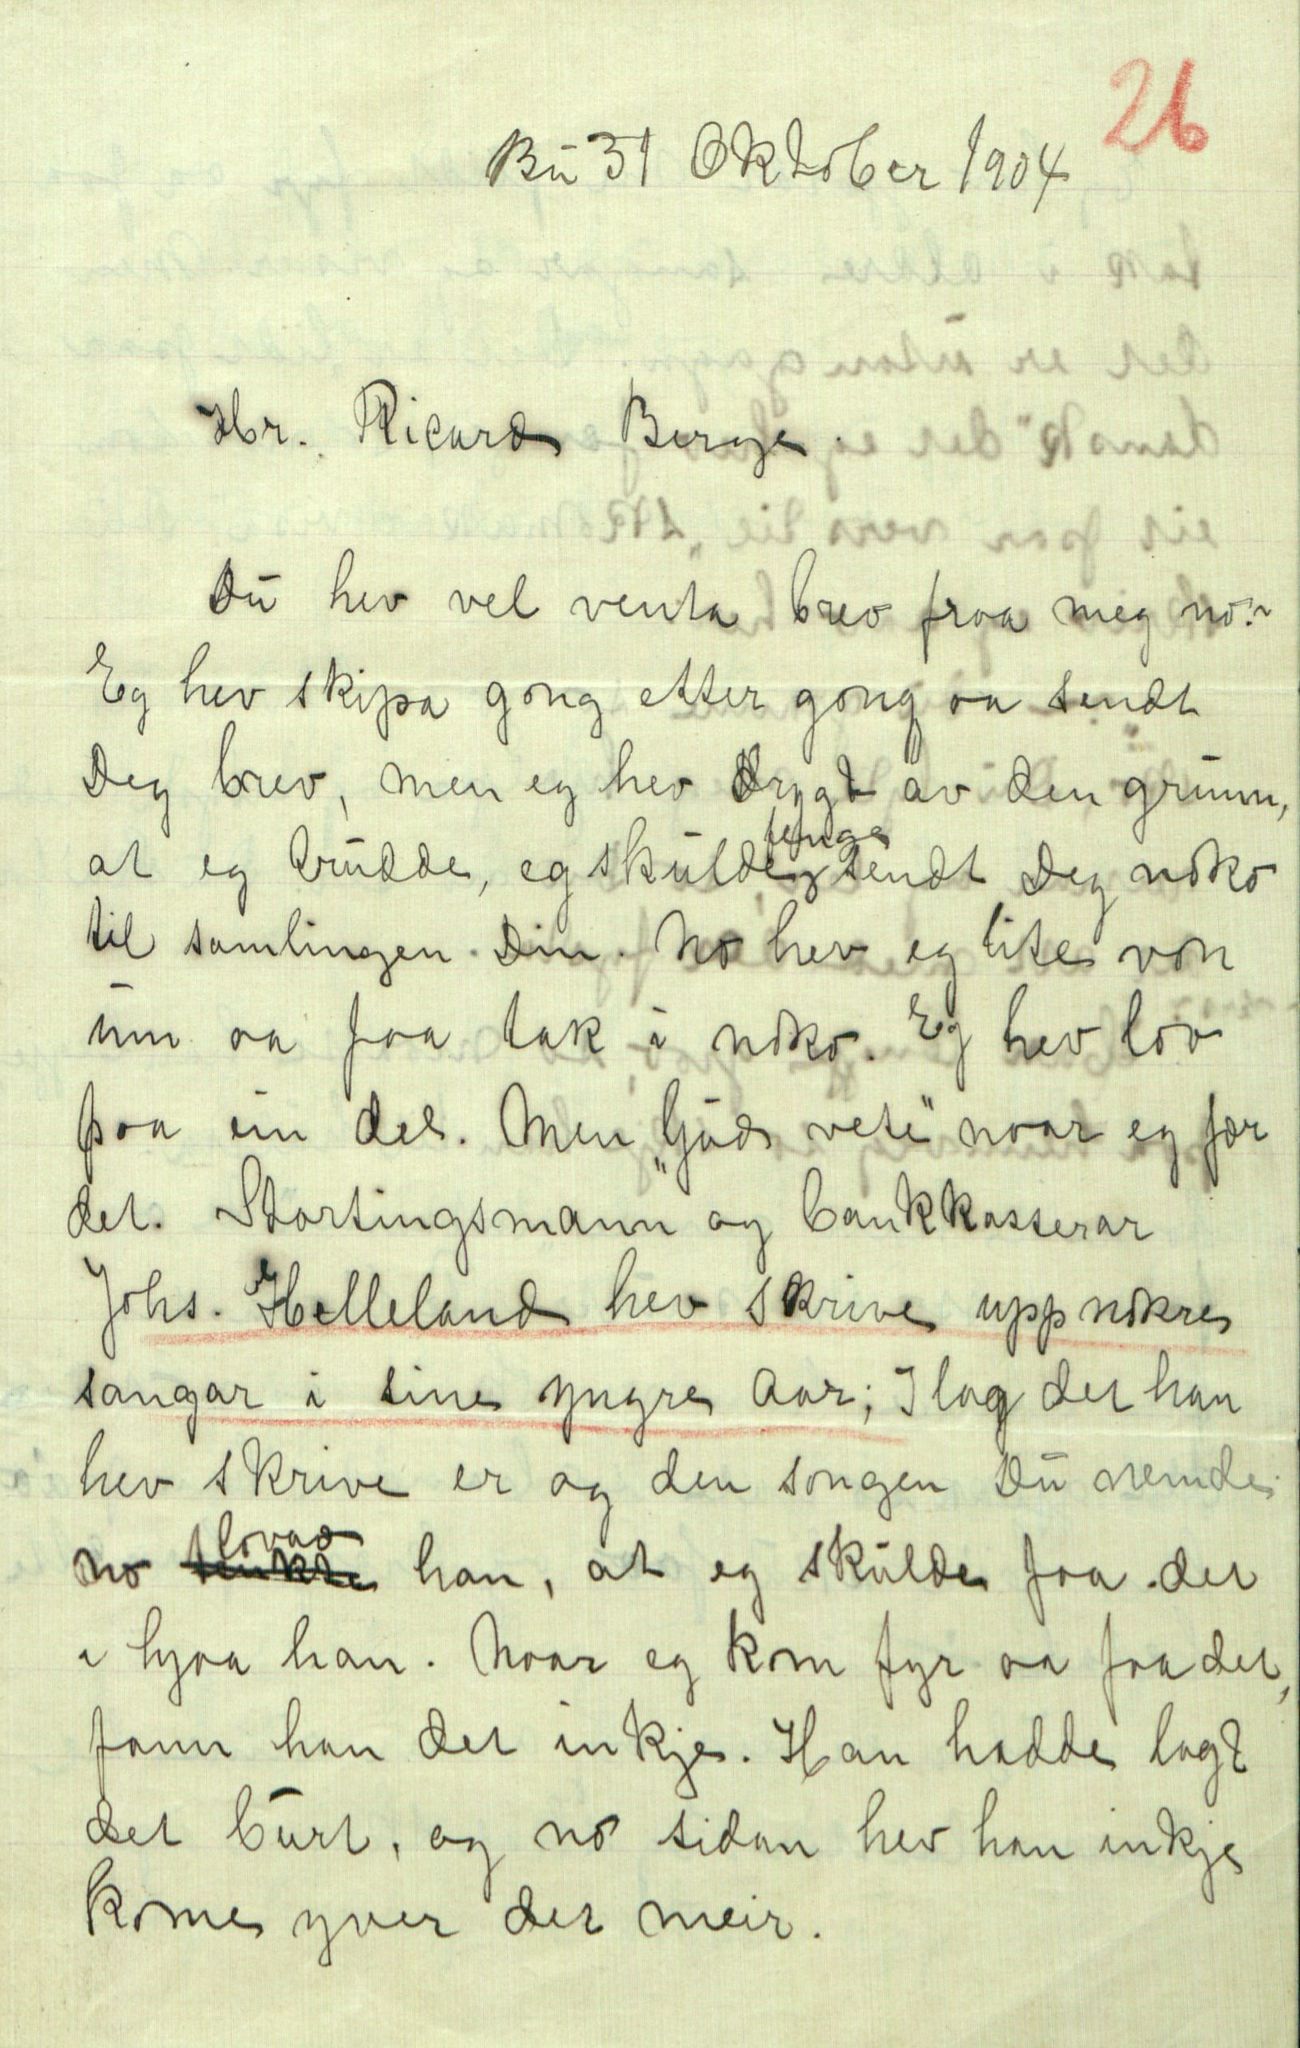 26
Bu 31 Oktober 1904
Hr. Rikard Berge.
Du hev vel venta brev fraa meg no.
Eg hev skipa gong etter gong aa sendt
Deg brev, men eg hev drygt av den grunn,
at eg trudde, eg skulde fenge sendt Deg noko
til samlingen Din. No hev eg lite von
um aa faa tak i noko. Eg hev lov
paa ein del. Men "Gud veit" naar eg fær
det. Stortingsmann og bankkasserar
Johs. Helleland hev skrive upp nokre
sangar i sine yngre Aar; I lag det han
hev skrive er og den songen Du nemde.
no lovad han, at eg skulde faa det
i hjaa han. Naar eg kom fyr aa faa det,
fann han det inkje. Han hadde lagt
det burt, og no sidan hev han inkje
kome yver det meir.